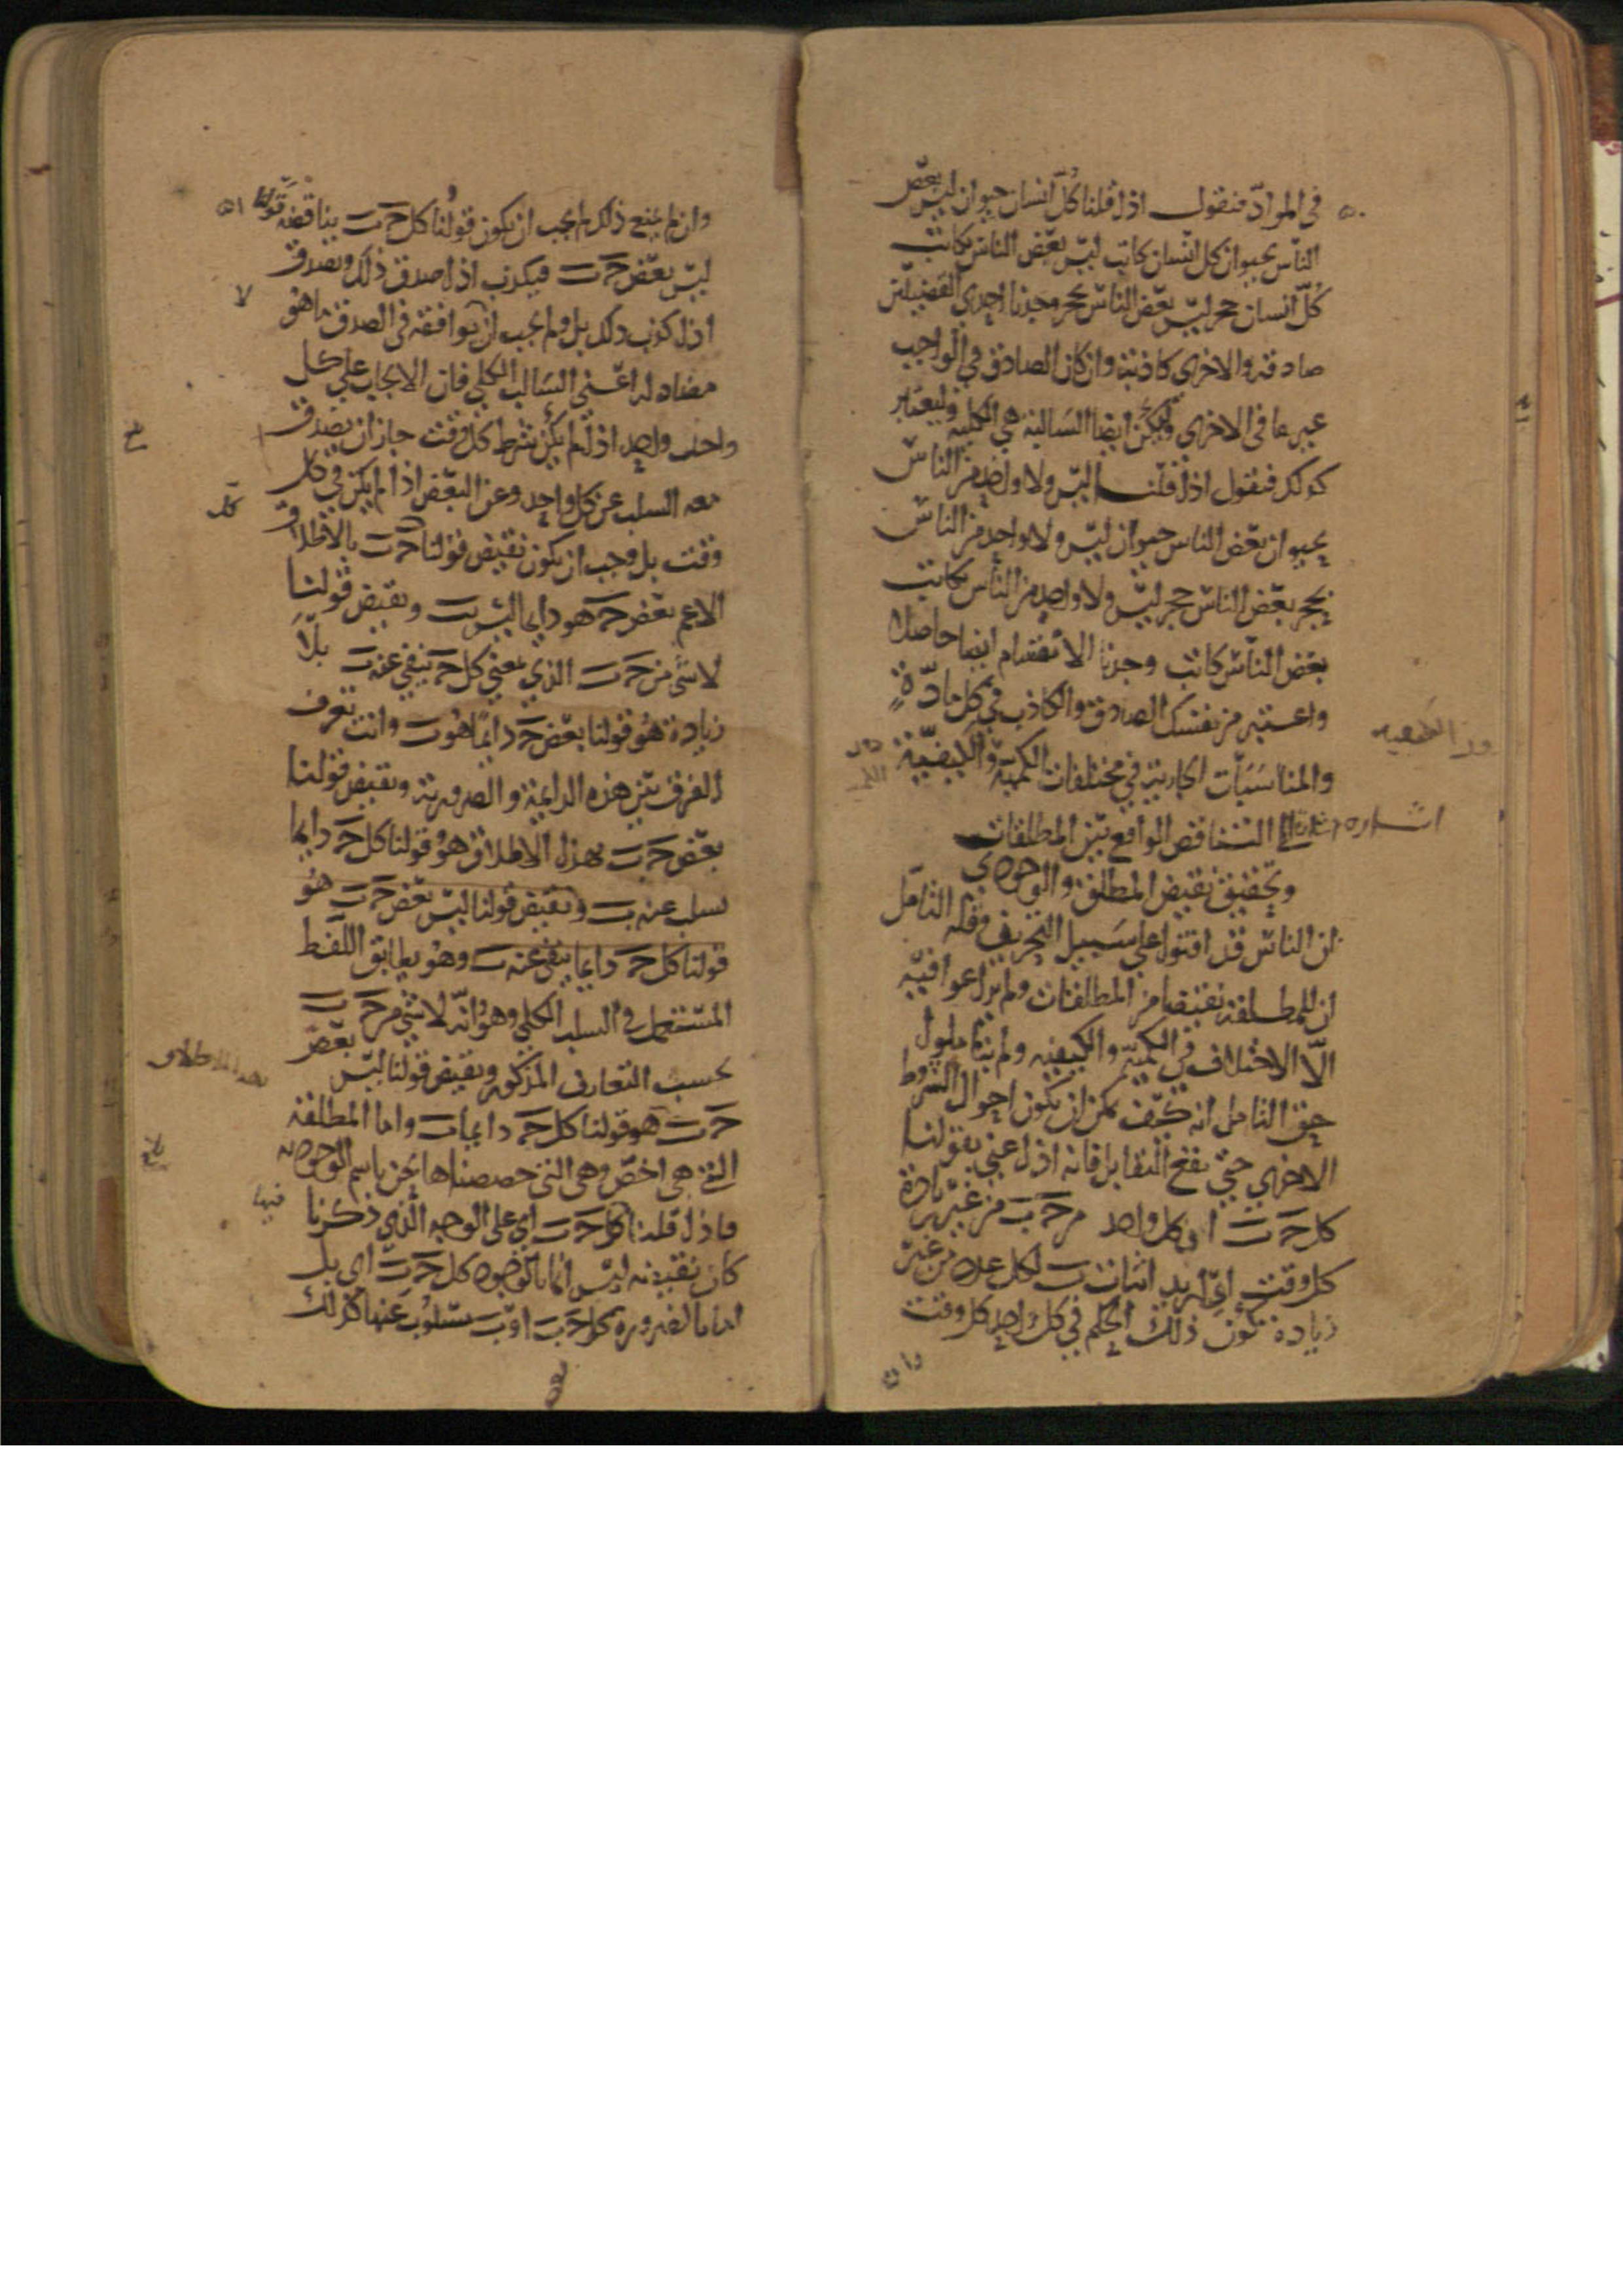 في المواد فنقول اذا قلنا كل انسان حيوان ليس بعض
الناس بحيوان كل انسان كاتب ليس بعض الناس بكاتب
كل انسان حجر ليس بعض الناس بحجر وجدنا احدى القضيتين
صادقة والاخرى كاذبة وان كان الصادق في الواجب
غير ما في الاخرى وليكن ايضا السالبة هي الكلية وليعتبر
كذلك فنقول اذا قلنا ليس ولا واحد من الناس
بحيوان بعض الناس حيوان ليس ولا واحد من الناس
بحجر بعض الناس حجر ليس ولا واحد من الناس بكاتب
بعض الناس كاتب وجدنا الاقتسام ايضا حاصلا
واعتبر من نفسك الصادق والكاذب في كل مادة
والمناسبات الجارية في مختلفات الكمية والكيفية
اشارة الى التناقض الواقع بين المطلقات
وتحقيق نقيض المطلق والوجودي
ان الناس قد افتوا على سبيل التحريف وقلة التامل
ان للمطلقة نقيضا من المطلقات ولم يراعوا فيه
الا الاختلاف في الكمية والكيفية ولم يتاملوا
حق التامل انه كيف يمكن ان يكون احوال الشروط
الاخرى حتى يقع التقابل فانه اذا عني بقولنا
كل ج ب ان كل واحد من ج ب من غير زيادة
كل وقت اي اريد اثبات ب لكل عدد من غير
زيادة كون ذلك الحكم في كل واحد كل وقت
وان
وان لم يمنع ذلك لم يجب ان يكون قولنا كل ج ب يناقضه قولنا
ليس بعض ج ب فيكذب اذا صدق ذلك ويصدق
اذا كذب ذلك بل ولم يجب ان يوافقه في الصدق ما هو
مضاد له اعني السالب الكلي فان الايجاب على كل
واحد واحد اذا لم يكن بشرط كل وقت جاز ان يصدق
معه السلب عن كل واحد وعن البعض اذا لم يكن في كل
وقت بل وجب ان يكون نقيض قولنا ج ب بالاطلاق
الاعم بعض ج هو دايما ليس ب ونقيض قولنا
لا شي من ج ب الذي بمعنى كل ج ينفى عنه ب بلا
زيادة هو قولنا بعض ج دايما هو ب وانت تعرف
الفرق بين هذه الدايمة والضرورية ونقيض قولنا
بعض ج ب بهذا الاطلاق هو قولنا كل ج دايما
يسلب عنه ب ونقيض قولنا ليس بعض ج ب هو
قولنا كل ج دايما ينفى عنه ب وهو يطابق اللفظ
المستعمل في السلب الكلي وهو انه لا شي من ج ب
بحسب التعارف المذكور ونقيض قولنا ليس بعض
ج ب هو قولنا كل ج دايما ب واما المطلقة
التي هي اخص وهي التي خصصناها نحن باسم الوجودية
فاذا قلنا كل ج ب اي على الوجه الذي ذكرنا
كان نقيضه ليس انما بالوجود كل ج ب اي بل
اما بالضرورة كل ج ب او ب مسلوب عنها كذلك